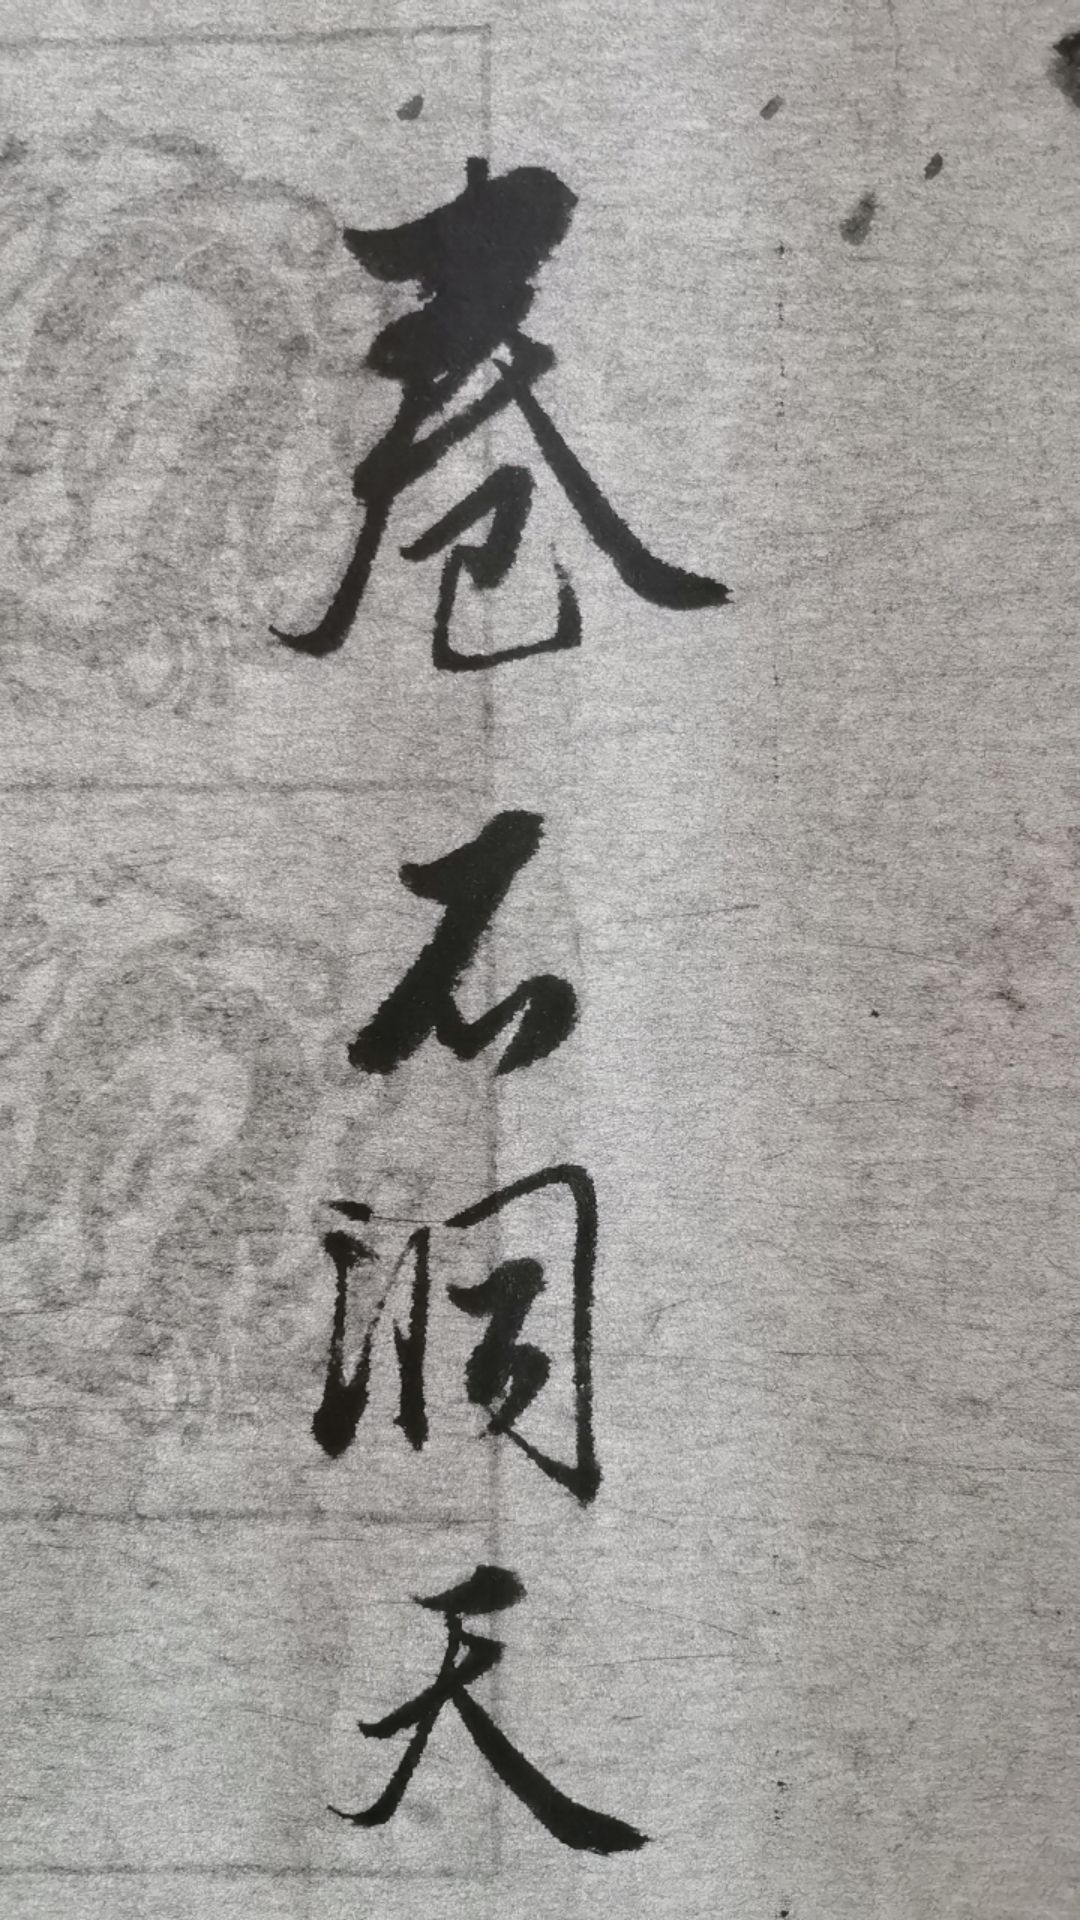 卷石洞天